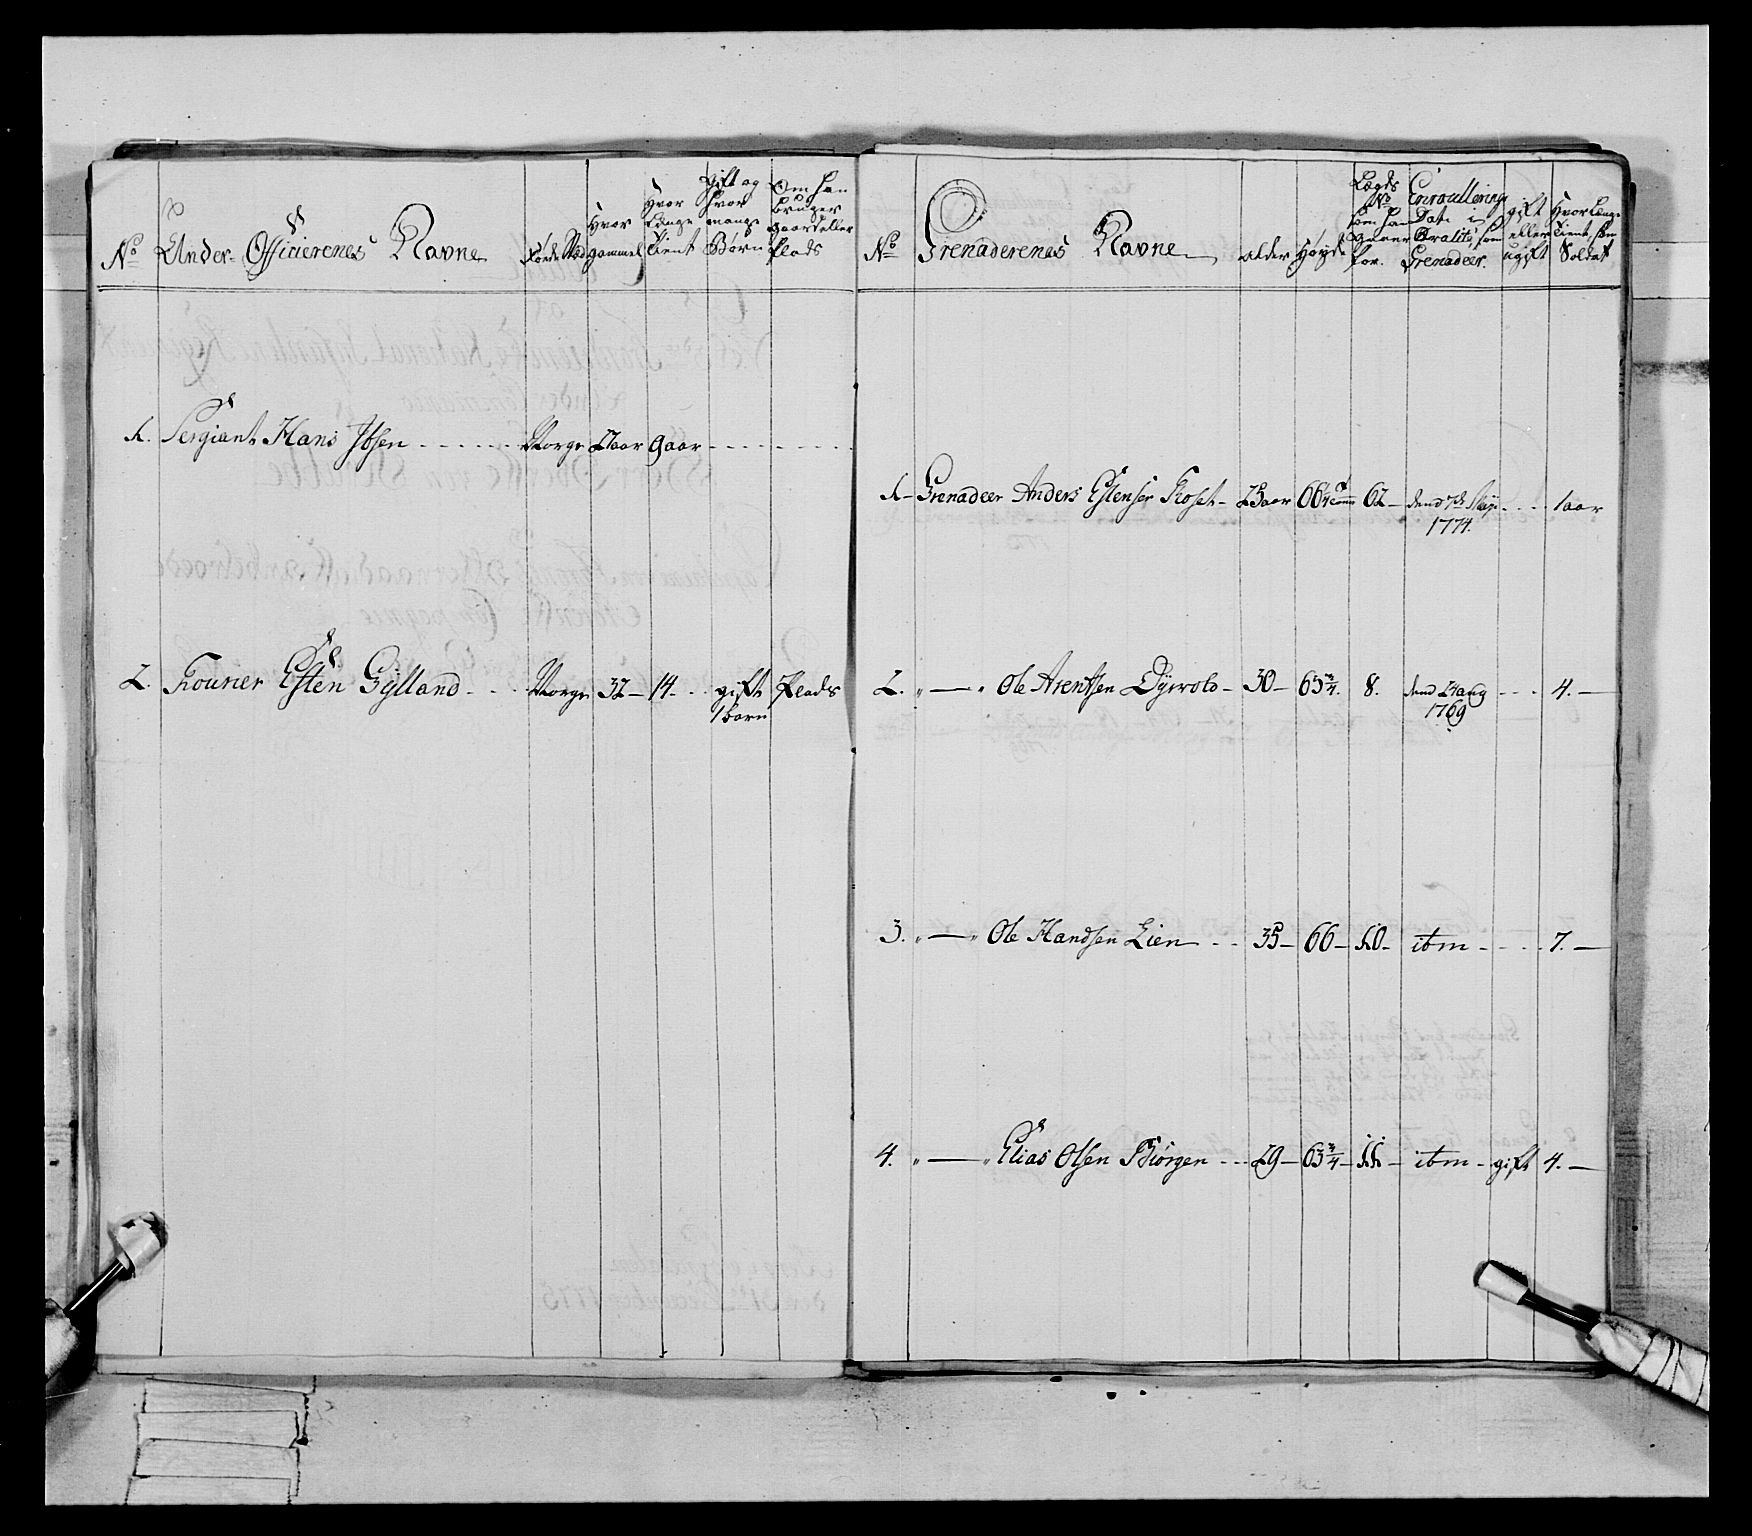 No
Under-Officierenes Navne
Føde Stæd
Hvor gammel
Hvor Længe tient
Gift og hvor mange Børn
Om han bruger gaard eller Plads
1. Sergiant Hans Ibsen Norge 27 aar 9 aar
2. Fourier Esten Gylland Norge 32 14 gift Plads
1 barn
No
Grenaderenes Navne
Alder
Høyde
Lægds No som han
for.
Enroullerings Dato i Qvalite som Grenadeer.
gift eller ugift
Hvor Længe tient som Soldat
1. Grenadeer Anders Estensen Roset 25 aar 66 1/4 62 dend 7de May 1 aar
1774.
2. " — " Ole Arentsen Dyrvold 30 65 3/4. 8. dend 24 aug 4.
1769
3. " — " Ole Handsen Lien 35 66 10 itm 7.
4. " — " Elias Olsen Biørgen 29 63 3/4 11 itm gift 4.